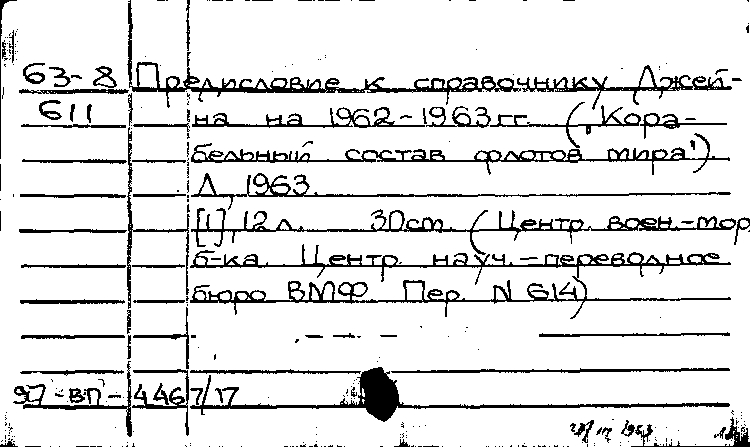 63-8 Предисловие к справочнику Джей-
611 на на 1962-1963гг. („Кора-
бельный состав флотов мира").
Л., 1963.
[1], 12 л. 30см. (Центр. воен.-мор.
б-ка. Центр. науч.-переводное
бюро ВМФ. Пер. N 614)
97-ВП-4467/17
1963